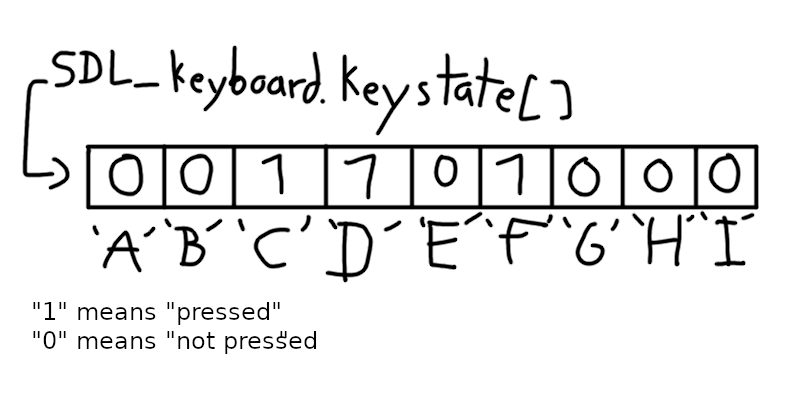 SDL_keyboard.keystate[]
0 0 1 1 0 1 0 0 0
'A' 'B' 'C' 'D' 'E' 'F' 'G' 'H' 'I'
"1" means "pressed"
"0" means "not pressed"